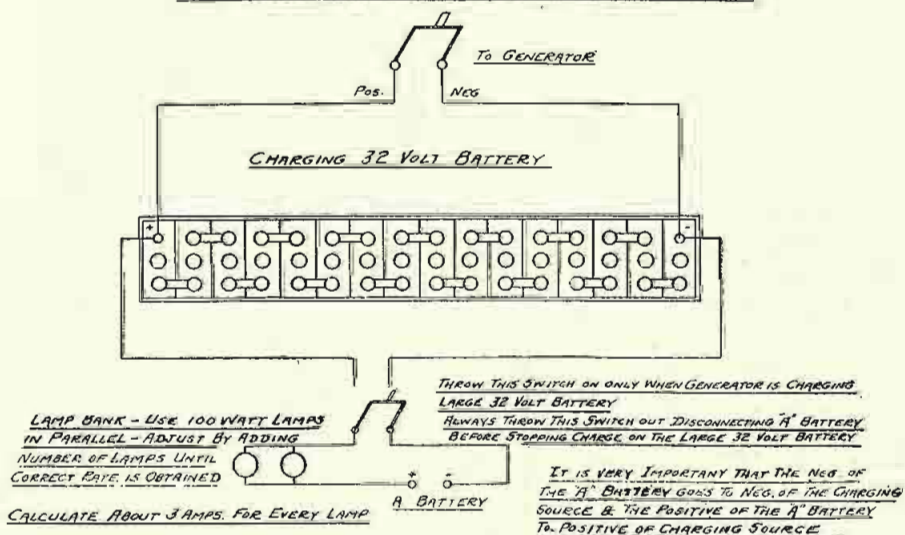 To GENERATOR
POS. NEG
CHARGING 32 VOLT BATTERY
+ -
THROW THIS SWITCH ON ONLY WHEN GENERATOR IS CHARGING
LARGE 32 VOLT BATTERY
ALWAYS THROW THIS SWITCH OUT DISCONNECTING "A" BATTERY
BEFORE STOPPING CHARGE ON THE LARGE 32 VOLT BATTERY
LAMP BANK - USE 100 WATT LAMPS
IN PARALLEL - ADJUST BY ADDING
NUMBER OF LAMPS UNTIL
CORRECT RATE IS OBTAINED
+ -
A BATTERY
CALCULATE ABOUT 3 AMPS. FOR EVERY LAMP
IT IS VERY IMPORTANT THAT THE NEG. OF
THE "A" BATTERY GOES TO NEG. OF THE CHARGING
SOURCE & THE POSITIVE OF THE "A" BATTERY
TO POSITIVE OF CHARGING SOURCE